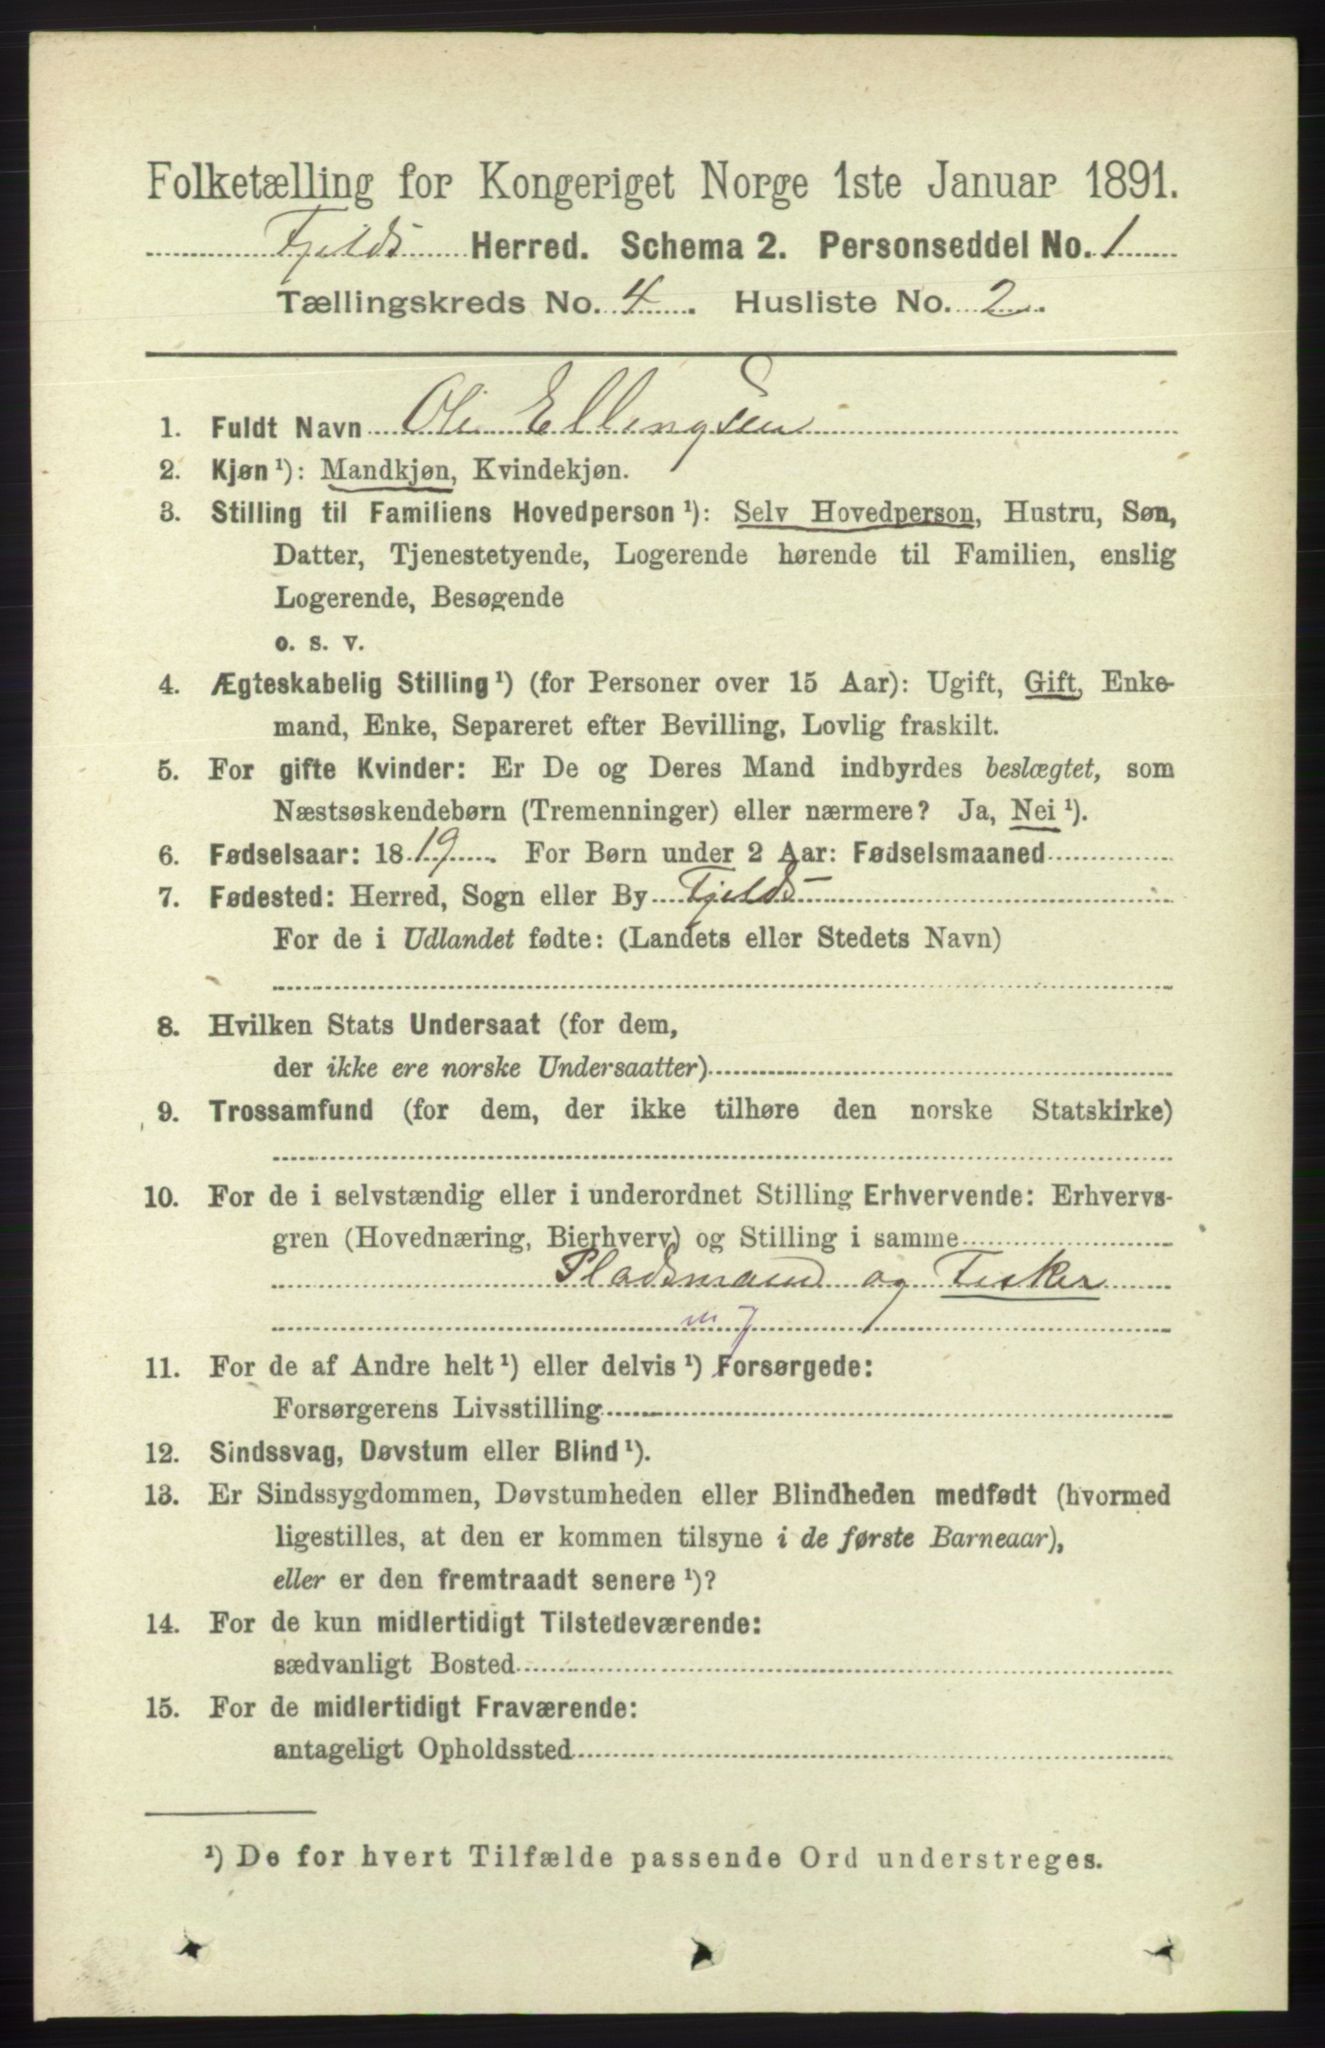 Folketælling for Kongeriget Norge 1ste Januar 1891.
Fjelds Herred. Schema 2. Personseddel No. 1
Tællingskreds No. 4. Husliste No. 2.
1. Fuldt Navn Ole Ellingsen
2. Kjøn ¹): Mandkjøn, Kvindekjøn.
3. Stilling til Familiens Hovedperson ¹): Selv Hovedperson, Hustru, Søn,
Datter, Tjenestetyende, Logerende hørende til Familien, enslig
Logerende, Besøgende
o. s. v.
4. Ægteskabelig Stilling ¹) (for Personer over 15 Aar): Ugift, Gift, Enke-
mand, Enke, Separeret efter Bevilling, Lovlig fraskilt.
5. For gifte Kvinder: Er De og Deres Mand indbyrdes beslægtet, som
Næstsøskendebørn (Tremenninger) eller nærmere? Ja, Nei ¹).
6. Fødselsaar: 1819. For Børn under 2 Aar: Fødselsmaaned
7. Fødested: Herred, Sogn eller By Fjelds
For de i Udlandet fødte: (Landets eller Stedets Navn)
8. Hvilken Stats Undersaat (for dem,
der ikke ere norske Undersaatter)
9. Trossamfund (for dem, der ikke tilhøre den norske Statskirke)
10. For de i selvstændig eller i underordnet Stilling Erhvervende: Erhvervs-
gren (Hovednæring, Bierhverv) og Stilling i samme
Pladsmand og Fisker
11. For de af Andre helt ¹) eller delvis ¹) Forsørgede:
Forsørgerens Livsstilling
12. Sindssvag, Døvstum eller Blind ¹).
13. Er Sindssygdommen, Døvstumheden eller Blindheden medfødt (hvormed
ligestilles, at den er kommen tilsyne i de første Barneaar),
eller er den fremtraadt senere ¹)?
14. For de kun midlertidigt Tilstedeværende:
sædvanligt Bosted
15. For de midlertidigt Fraværende:
antageligt Opholdssted
¹) De for hvert Tilfælde passende Ord understreges.